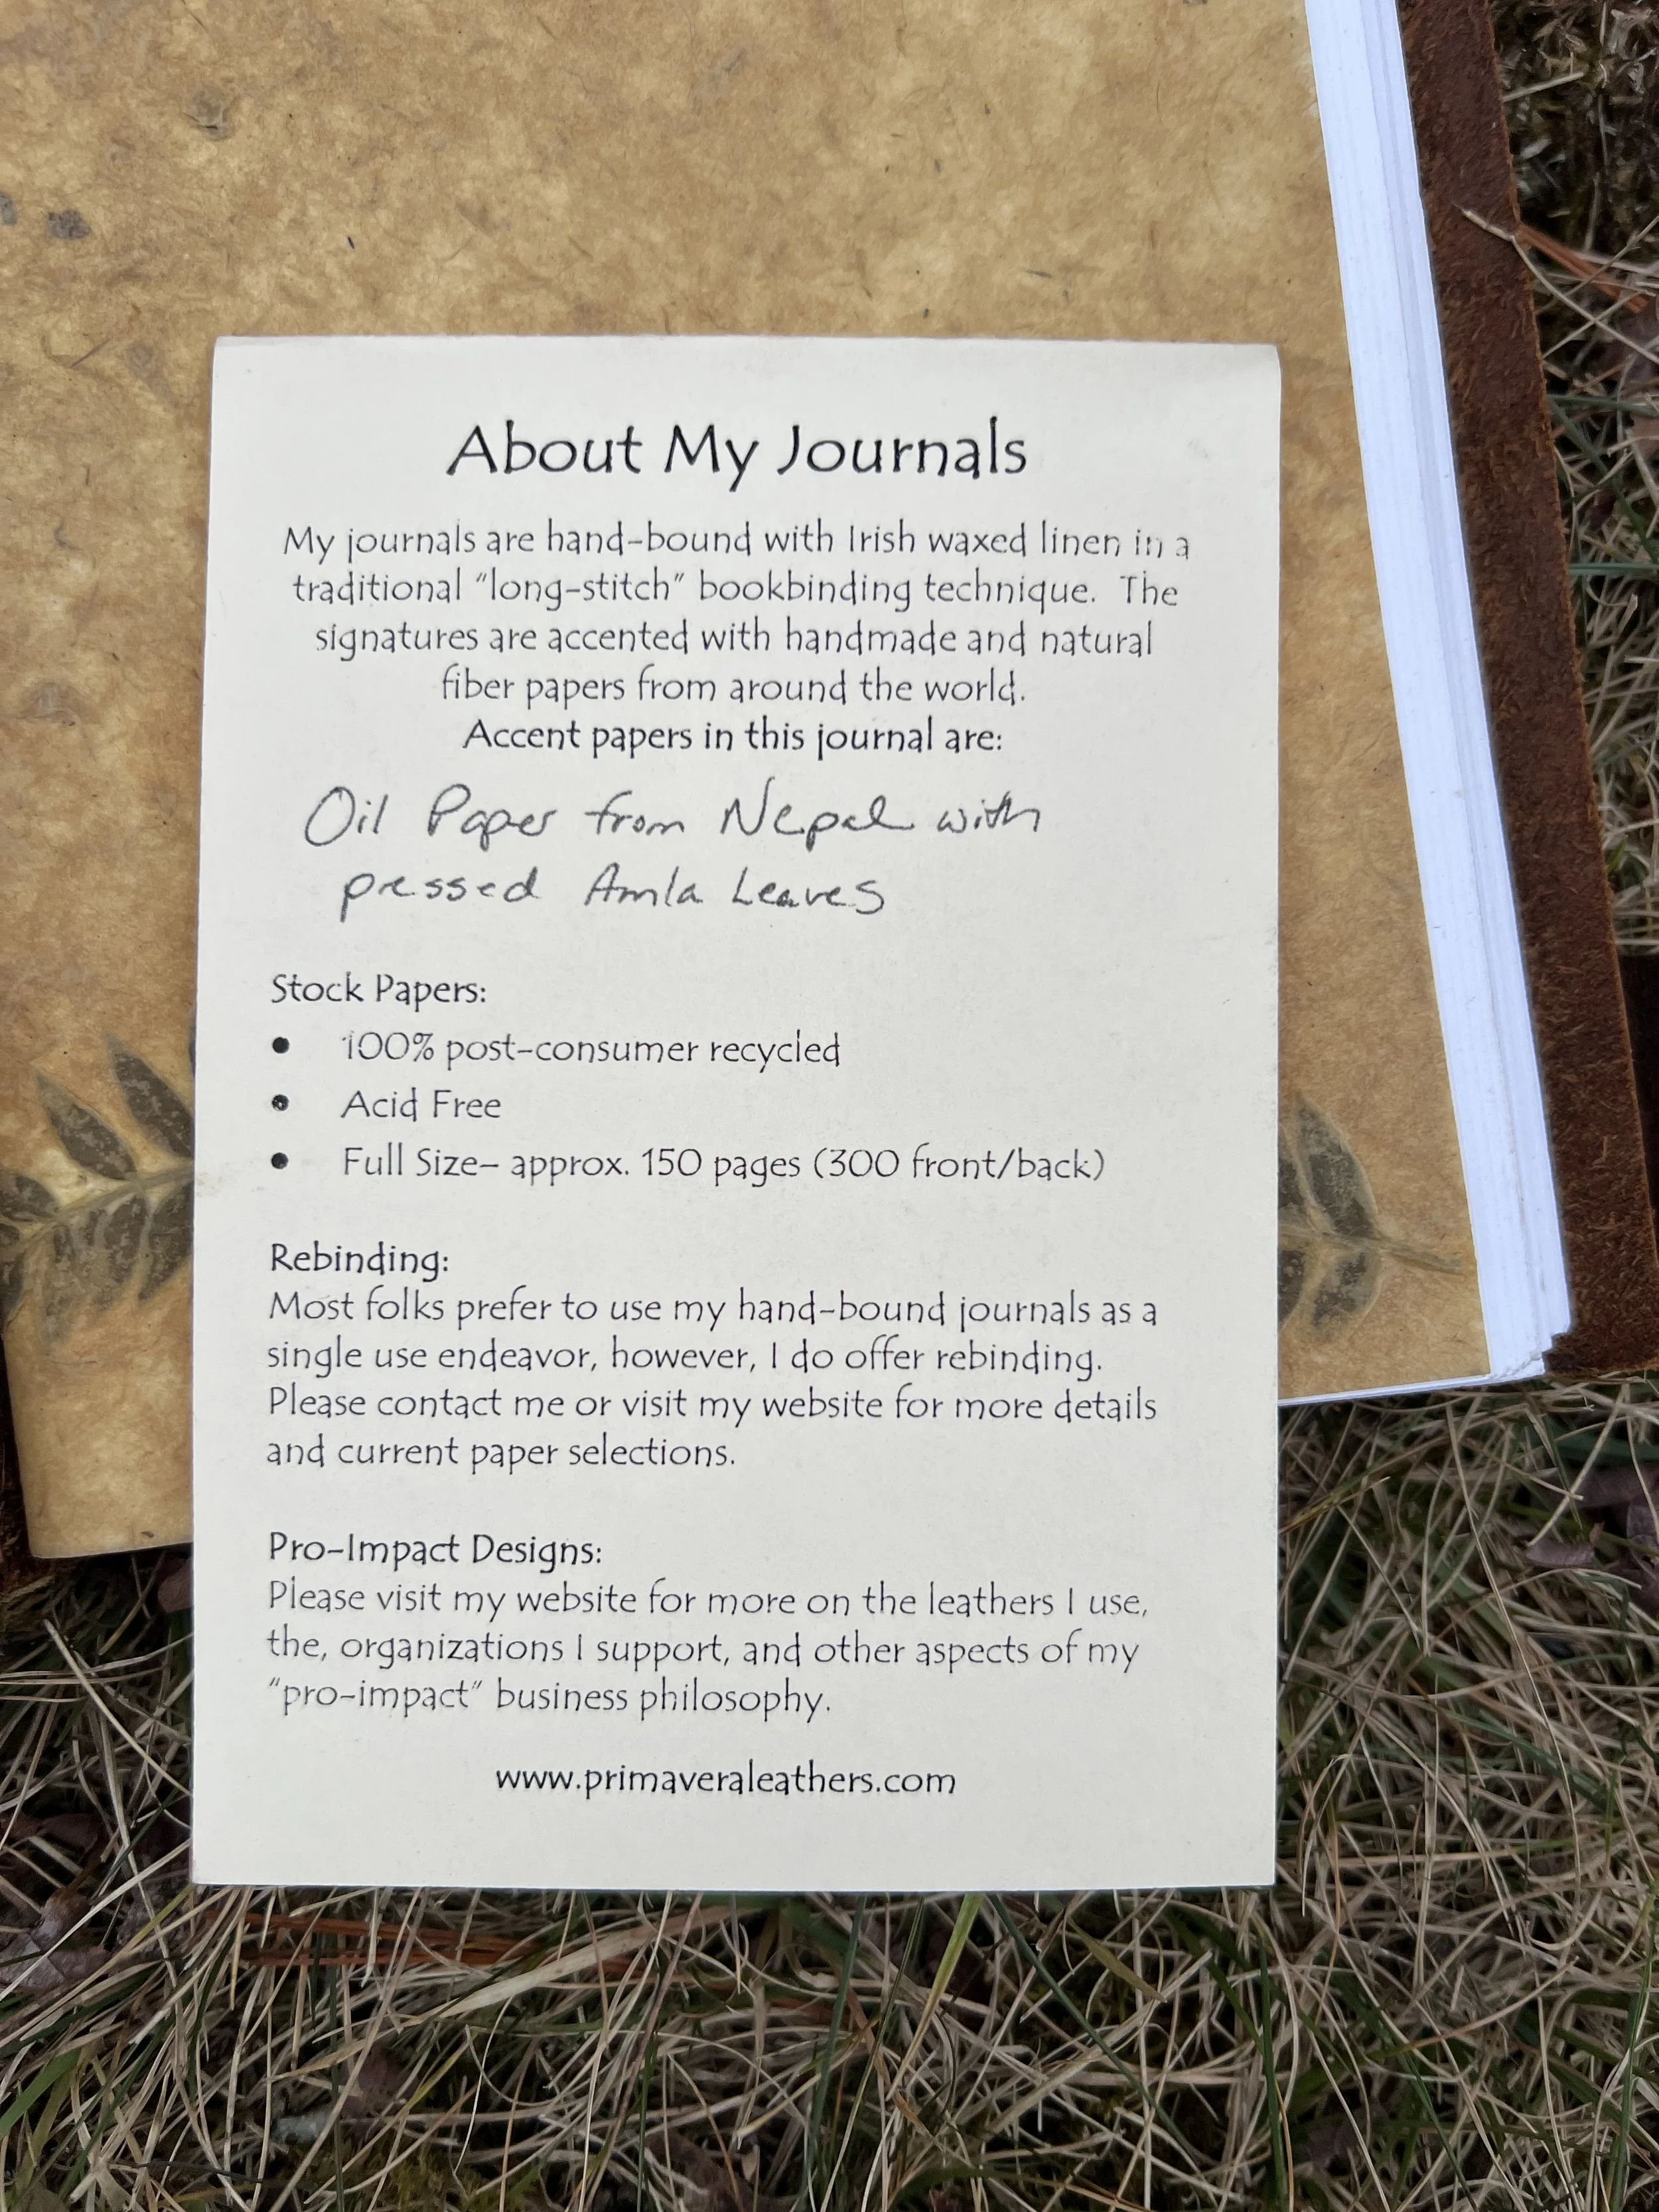 About My Journals
My journals are hand-bound with Irish waxed linen in a
traditional "long-stitch" bookbinding technique. The
signatures are accented with handmade and natural
fiber papers from around the world.
Accent papers in this journal are:
Oil Paper from Nepal with
pressed Amla Leaves
Stock Papers:
• 100% post-consumer recycled
• Acid Free
• Full Size– approx. 150 pages (300 front/back)
Rebinding:
Most folks prefer to use my hand-bound journals as a
single use endeavor, however, I do offer rebinding.
Please contact me or visit my website for more details
and current paper selections.
Pro-Impact Designs:
Please visit my website for more on the leathers I use,
the, organizations I support, and other aspects of my
"pro-impact" business philosophy.
www.primaveraleathers.com